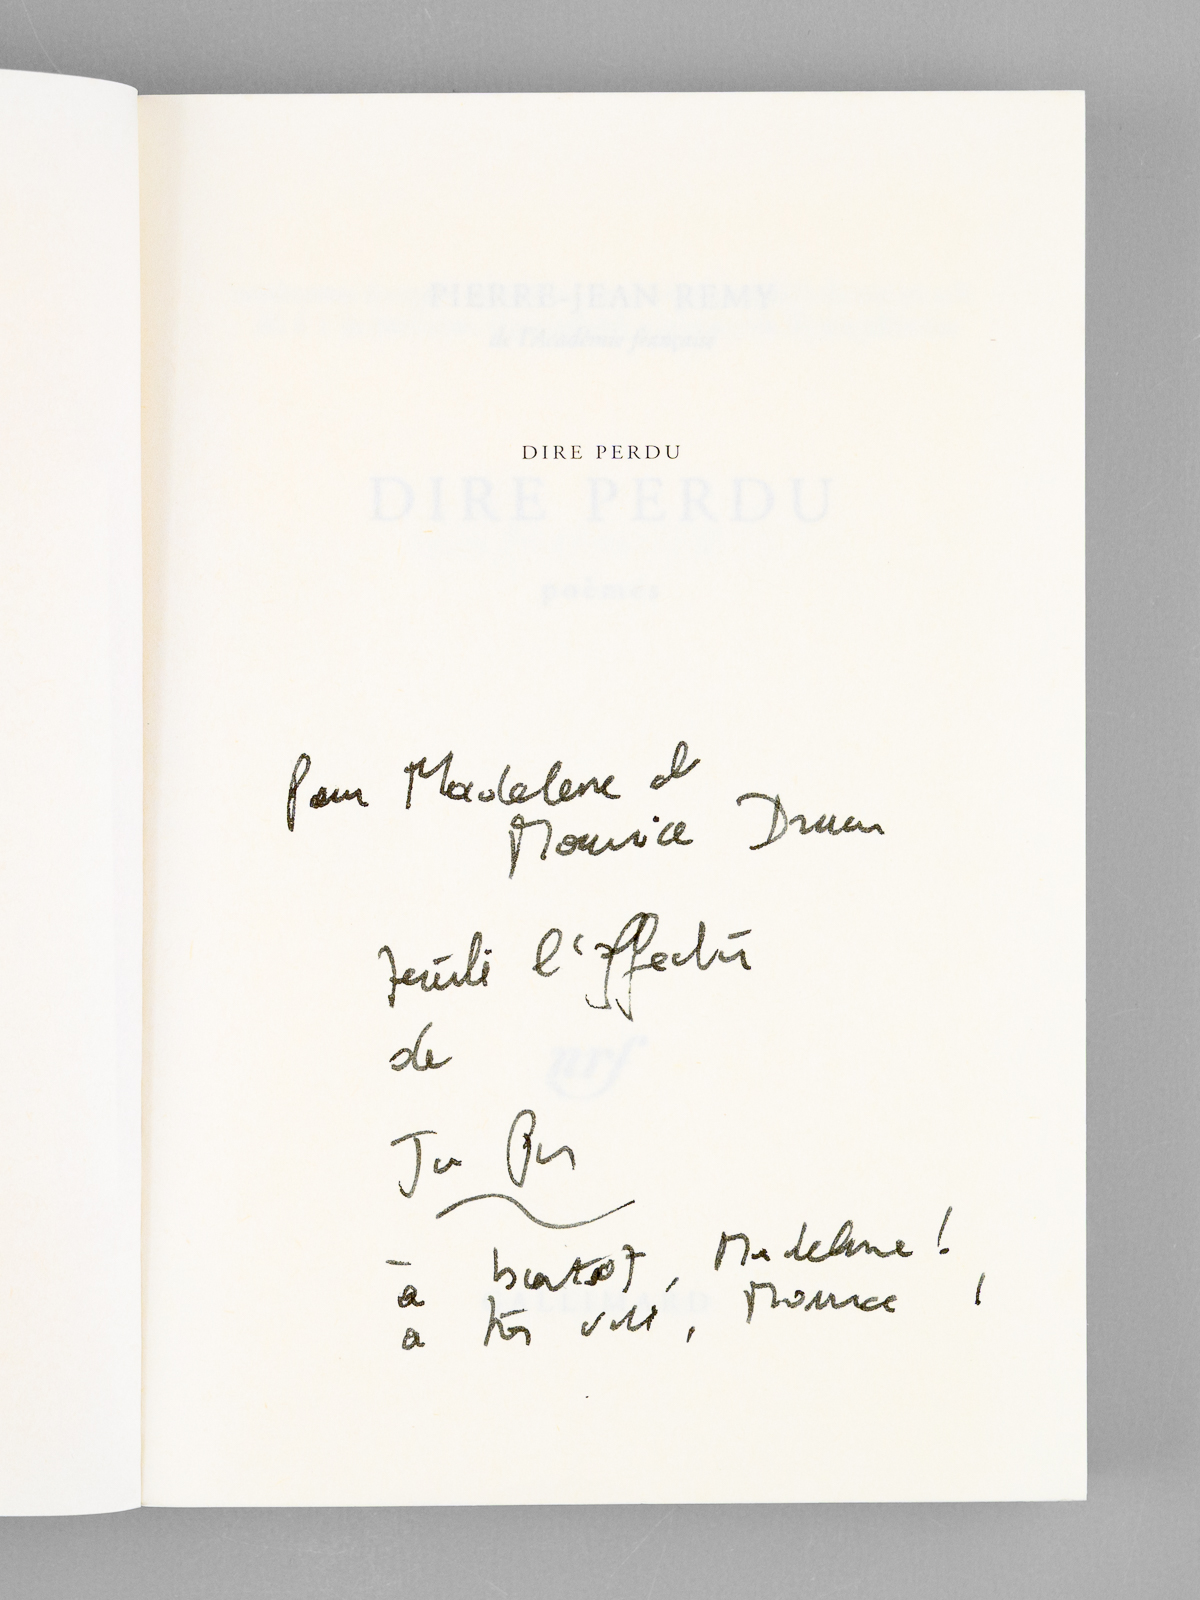 PIERRE-JEAN REMY
de l'Académie française
DIRE PERDU
DIRE PERDU
poèmes
Pour Madeleine et
Maurice Druon
l'affection
de
nrf
à bientôt, Madeleine !
GALLIMARD
à très vite, Maurice !